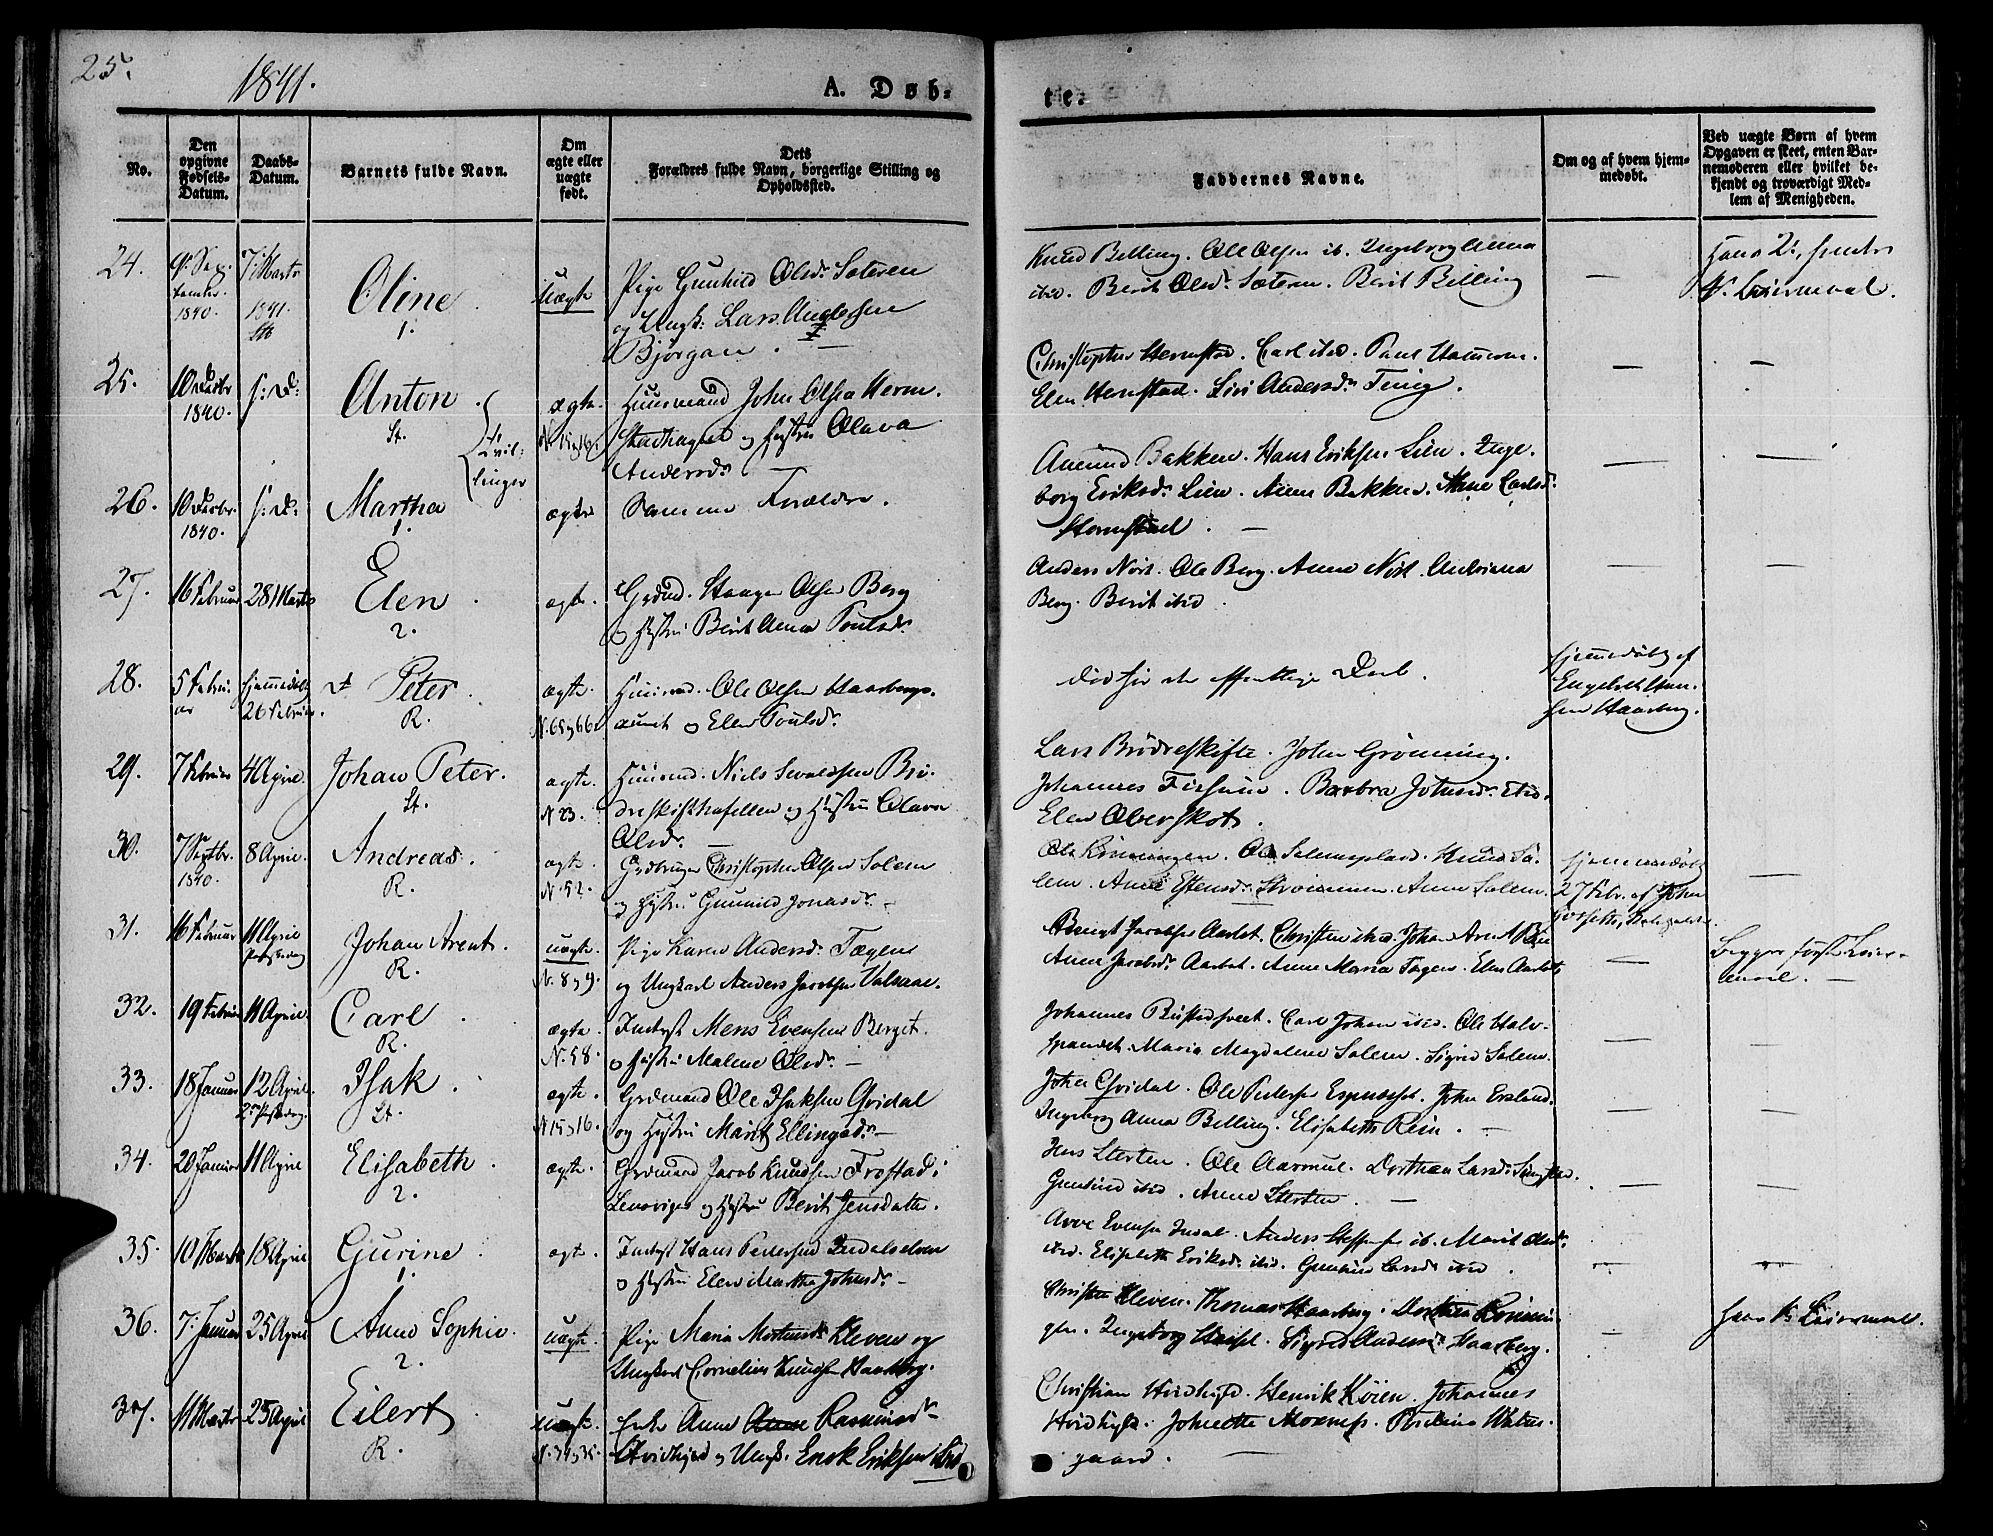 25.
1841.
A. Døb-
te.
No.
Den opgivne Fødsels-Datum.
Daabs-Datum.
Barnets fulde Navn.
Om ægte eller uægte født.
Dets Forældres fulde Navn, borgerlige Stilling og Opholdssted.
Faddernes Navne.
Om og af hvem hjem-
medøbt.
Ved uægte Børn af hvem
Opgaven er skeet, enten Bar-
nemoderen eller hvilket be-
kjendt og troværdigt Med-
lem af Menigheden.
24.
1840.
7. Marts
1841.
Oline
1.
uægte
Pige Gunhild Olsdr Sæteren
og Ungk: Lars
Bjørgan. —
Knud Belling. Ole Olsen ib. Ingeborg Anna
ibid. Berit Olsdr Sæteren. Berit Belling
—
hans 2.,
25.
10 Decbr
1840.
Anton
St.
Tvil-
linger
ægte.
N. 15 og 16.
Huusmand John Olsen Herm-
stadhagen og Hustru Olava
Andersdr —
Christopher Hermstad. Carl ibid. Paul
Elen Hermstad. Siri Andersdr Ting.
—
—
26.
10 Decbr.
1840.
Martha
1.
ægte
Samme Forældre.
Amund Bakken. Hans Eriksen Lien. Inge-
borg Eriksdr Lien. Anne Bakken. Anne Carlsd.
Hermstad. —
—
—
27.
16 Februar
28 Marts
Elen
2.
ægte.
Grdmd. Haagen Olsen Berg
og Hustru Berit Anna Poulsdr
Anders Nöst. Ole Berg. Anne Nöst. Andriana
Berg. Berit ibid.
—
—
28.
5 Febru-
ar
hjemmedøbt
26 Februar.
Peter
R.
ægte.
N. 65 og 66
Huusmd. Ole Olsen Haarbergs-
aunet og Elen Poulsdr
död før den offentlige Daab.
hjemmedøbt af
Engelbrth Han-
sen Haarberg.
29.
7 Februar
4 April
Johan Peter.
St.
ægte.
N. 23.
Huusmd. Niels Sivaldsen Brö-
dreskift og Hustru Olava
Olsdr —
Lars Brödreskifte. John Grönning.
Johannes . Barbra Johnsdr ibid.
Elen Oberskot.
30.
7 Septbr.
1840.
8 April.
Andreas.
R.
ægte
N. 52.
Grdbruger Christopher Olsen Solem
og Hustru Gunnild Jonasdr —
Ole . Ole Solemsplads. Knud So-
lem. Anne Estensdr Strömmen. Anne Solem.
hjemmedøbt
27 Febr. af John
—
31.
16 Februar
11 April
Paaskedag
Johan Arent.
R.
uægte.
N. 8 og 9.
Pige Karen Andersdr Tægen
og Ungkarl Anders Jacobsen Valsaae.
Bengt Jacobsen Aarset. Christen ibid. Johan Arnt
Anne Jacobsdr Aarset. Anne Maria Tægen. Elen Aarset
—
Begges første Leier-
maal. —
32.
19 Februar
11 April
Carl
R.
ægte.
N. 58.
Indrst Mons Evensen Berget.
og Hustru Malene Olsdr —
Johannes . Carl Johan ibid. Ole Halv-
. Maria Magdalene Solem. Sigrid Solem.
—
—
33.
18 Januar
12 April.
2den Paaskedag.
Isak
St.
ægte.
N. 15 og 16.
Grdmand Ole Isaksen Qvidal
og Hustru Marit Ellingsdr —
John Qvidal. Ole Pedersen Espneset. John .
Ingeborg Anna Belling. Elisabeth Rein. —
—
—
34.
20 Januar
11 April
Elisabeth.
2.
ægte.
Grdmand Jacob Knudsen Frostad i
Lensvigen og Hustru Berit Jensdatter.
Jens Sterten. Ole Aarmul. Dorthea Larsdr
Gunnild ibid. Anne Sterten. —
—
—
35.
10 Marts
18 April
Gurine
1.
ægte.
Indrst Hans Pedersen Indalselven
og Hustru Elen Martha Johnsdr —
Arve Evensen Indal. Anders Steffensen ib. Marit Olsdr
ibid. Elisabeth Eriksdr ibid. Gunnild Larsdr ibid.
36.
7. Januar
25 April
Anne Sophie.
2.
uægte.
Pige Maria Mortensdr Kleven og
Ungkarl Cornelius Knudsen Haarberg.
Christen Kleven. Thomas Haarberg. Dorthea
. Ingeborg . Sigrid Andersdr Haarberg.
—
hans 1ste Leiermaal.
37.
11 Marts
25 April
Eilert
R.
uægte.
N. 34 og 35.
Enke Anne Rasmusdr
Hvidhyld og Ungk. Enok Eriksen ibid
Christian Hvidhyld. Henrik Köien. Johannes
Hvidhyld. Johnette Moxnes. Pauline Watn-
gaard. —